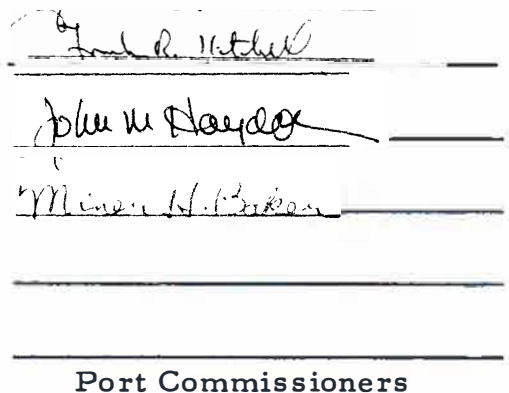 Frank R. Kitchell
John M Haydon
Miner H. Baker
Port Commissioners